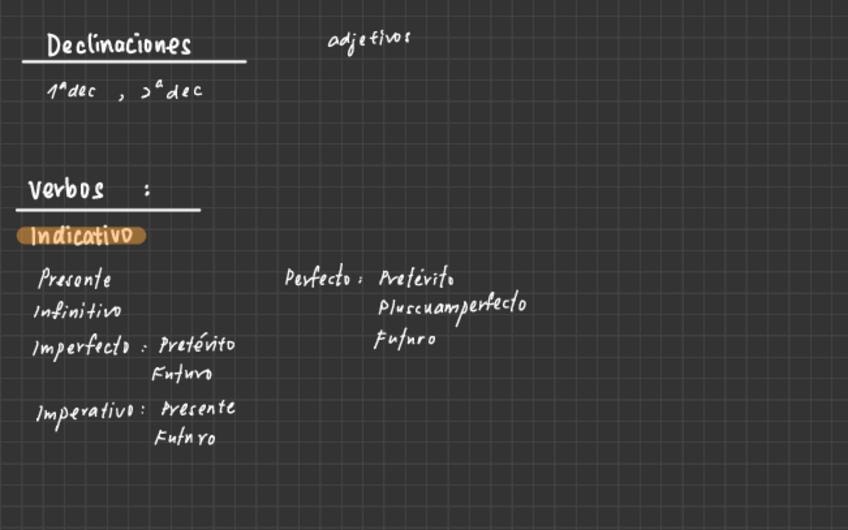 Declinaciones
adjetivos
1ª dec , 2ª dec
Verbos :
Indicativo
Presente
Infinitivo
Imperfecto : Pretérito
Futuro
Imperativo : Presente
Futuro
Perfecto : Pretérito
Pluscuamperfecto
Futuro